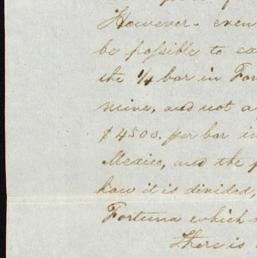 However. even
be possible to
the 1/4 bar in For
mine, and not a
$4500. per bar in
Mexico, and the p
how it is divided,
Fortuna which
There is